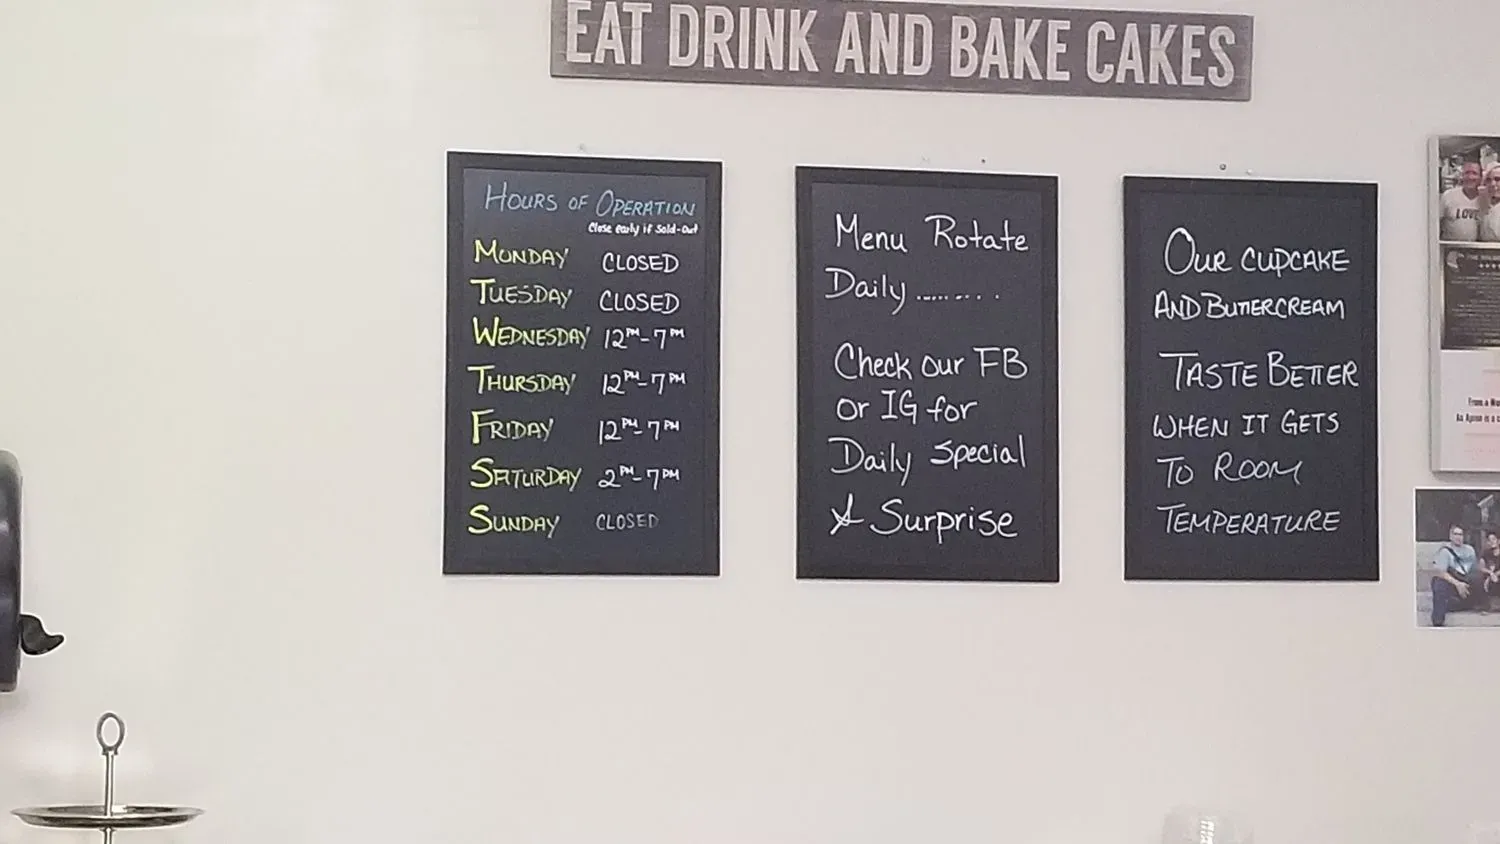 EAT DRINK AND BAKE CAKES
HOURS OF OPERATION
Close early if Sold-Out
MONDAY CLOSED
TUESDAY CLOSED
WEDNESDAY 12PM-7PM
THURSDAY 12PM-7PM
FRIDAY 12PM-7PM
SATURDAY 2PM-7PM
SUNDAY CLOSED
Menu Rotate
Daily.........
Check our FB
or IG for
Daily Special
& Surprise
OUR CUPCAKE
AND BUTTERCREAM
TASTE BETTER
WHEN IT GETS
TO ROOM
TEMPERATURE
LOVE